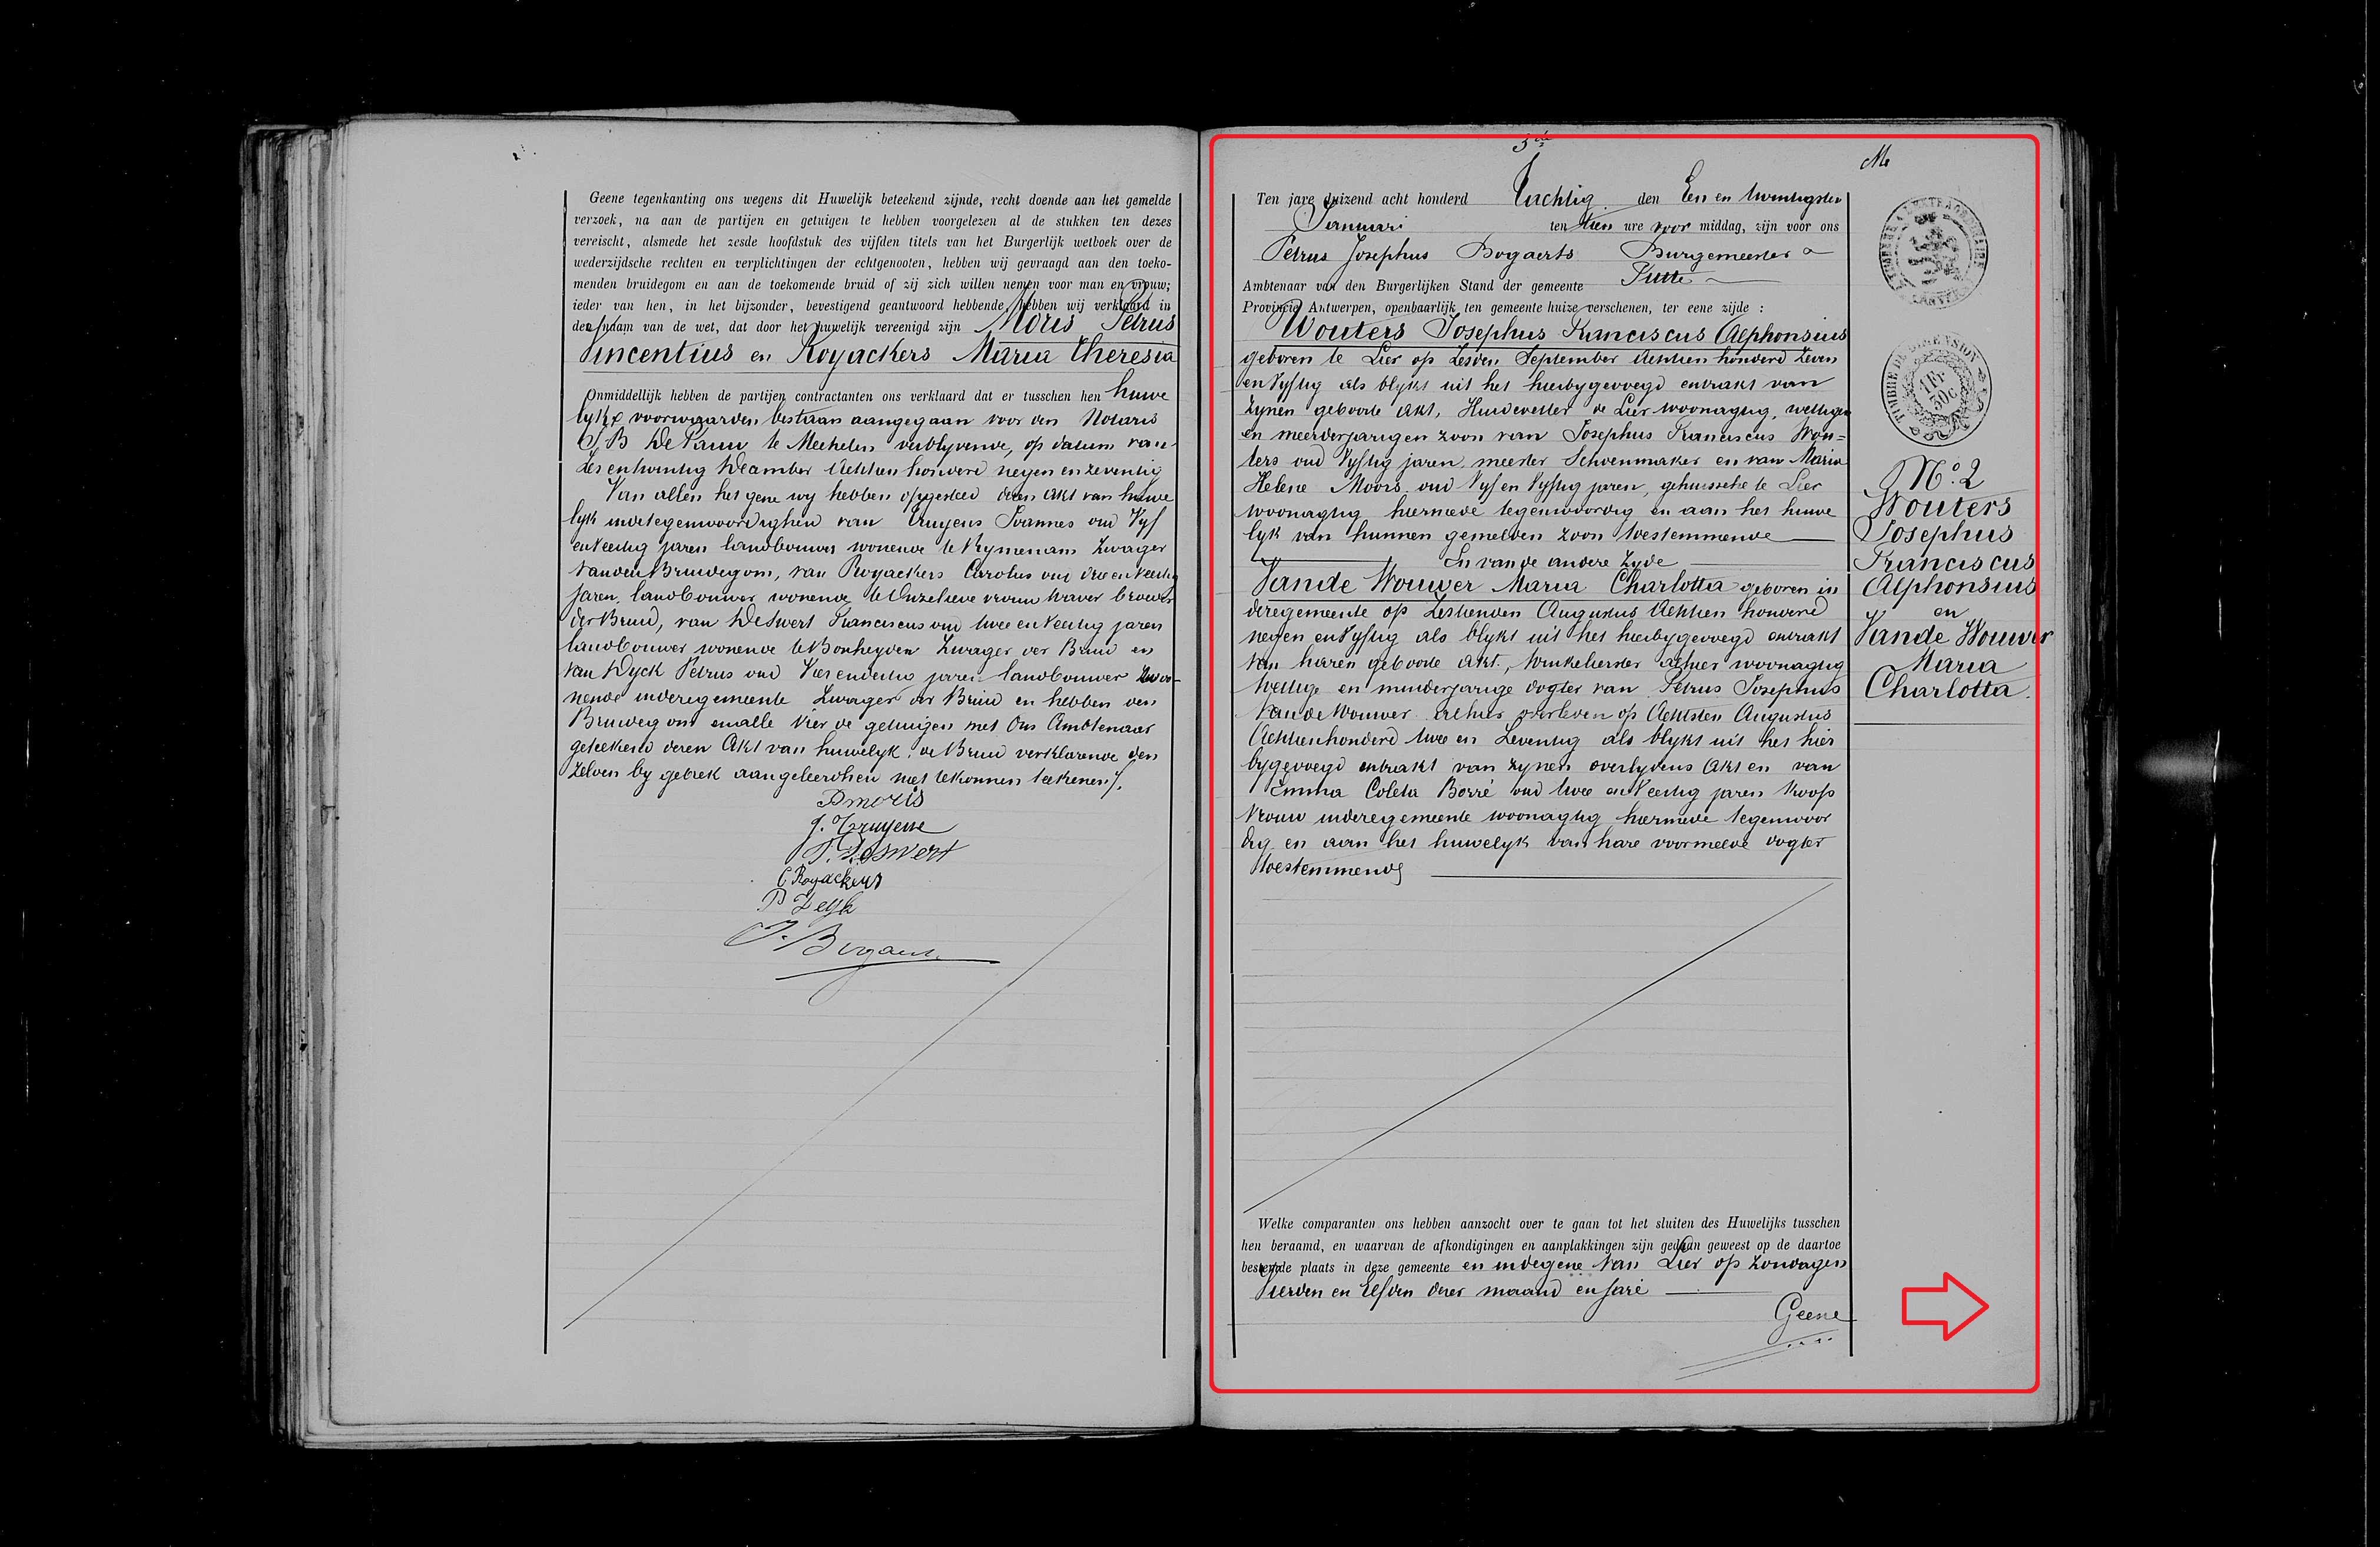 Geene tegenkanting ons wegens dit Huwelijk beteekend zijnde, recht doende aan het gemelde
verzoek, na aan de partijen en getuigen te hebben voorgelezen al de stukken ten dezes
vereischt, alsmede het zesde hoofdstuk des vijfden titels van het Burgerlijk wetboek over de
wederzijdsche rechten en verplichtingen der echtgenooten, hebben wij gevraagd aan den toeko-
menden bruidegom en aan de toekomende bruid of zij zich willen nemen voor man en vrouw;
ieder van hen, in het bijzonder, bevestigend geantwoord hebbende, hebben wij verklaard in
den naam van de wet, dat door het huwelijk vereenigd zijn Moris Petrus
Vincentius en Royackers Maria Theresia
Onmiddellijk hebben de partijen contractanten ons verklaard dat er tusschen hen huwe
lyks voorwaarden bestaan aangegaan voor den Notaris
De Pauw te Mechelen verblyvende, op datum van
zes en twintig December Achttien honderd negen en zeventig
Van allen het gene wy hebben opgesteld dezen akt van huwe
lyk in de tegenwoordigheid van Truyens Joannes oud Vyf
en Veertig jaren landbouwer wonende te Rymenam Zwager
van den Bruidegom, van Royackers Carolus oud drie en Veertig
jaren, landbouwer wonende te Onzelieve vrouw Waver broeder
der Bruid, van De Swert Franciscus oud twee en Veertig jaren
landbouwer wonende te Bonheyden Zwager der Bruid en
Van Dyck Petrus oud Vier en dertig jaren landbouwer wo-
nende in deze gemeente Zwager der Bruid en hebben den
Bruidegom en alle Vier de getuigen met Ons Ambtenaar
geteekend dezen Akt van huwelyk, de Bruid verklarende den
zelven by gebrek aan geleerdheid niet te konnen teekenen /.
P Moris
J. Truyens
F. Deswert
C Royackers
P Dyck
J. Bogaerts
3de
Ten jare duizend acht honderd Tachtig den Een en twintigsten
Januari ten tien ure voor middag, zijn voor ons
Petrus Josephus Bogaerts Burgemeester
Ambtenaar van den Burgerlijken Stand der gemeente Putte
Provincie Antwerpen, openbaarlijk ten gemeente huize verschenen, ter eene zijde :
Wouters Josephus Franciscus Alphonsius
geboren te Lier op Zesden September Achttien honderd Zeven
en Vyftig als blykt uit het hierbygevoegd extrakt van
zynen geboorte akt, Huidevetter te Lier woonagtig, wettigen
en meerderjarigen zoon van Josephus Franciscus Wou=
ters oud Vyftig jaren, meester Schoenmaker en van Maria
Helene Moors oud Vyf en Vyftig jaren, gehuissche te Lier
woonagtig hiermede tegenwoordig en aan het huwe
lyk van hunnen gemelden zoon toestemmende
En van de andere Zyde
Vande Wouwer Maria Charlotta geboren in
deze gemeente op Zestienden Augustus Achttien honderd
negen en Vyftig als blykt uit het hierbygevoegd extrakt
van haren geboorte akt, Winkelierster alhier woonagtig
Wettige en minderjarige dogter van Petrus Josephus
Van de Wouwer alhier overleden op Achtsten Augustus
Achttienhonderd twee en Zeventig als blykt uit het hier
bygevoegd extrakt van zynen overlydens Akt en van
Emma Coleta Borré oud twee en Veertig jaren Koop
Vrouw in deze gemeente woonagtig hiermede tegenwoor
dig en aan het huwelyk van hare voormelde dogter
toestemmende
Welke comparanten ons hebben aanzocht over te gaan tot het sluiten des Huwelijks tusschen
hen beraamd, en waarvan de afkondigingen en aanplakkingen zijn gedaan geweest op de daartoe
bestemde plaats in deze gemeente en in degene van Lier op zondagen
Vierden en Elfden dezer maand en jare
Geene
TIMBRE DE DIMENSION
1 Fr.
30 C.
N.o 2
Wouters
Josephus
Franciscus
Alphonsius
en
Vande Wouwer
Maria
Charlotta.